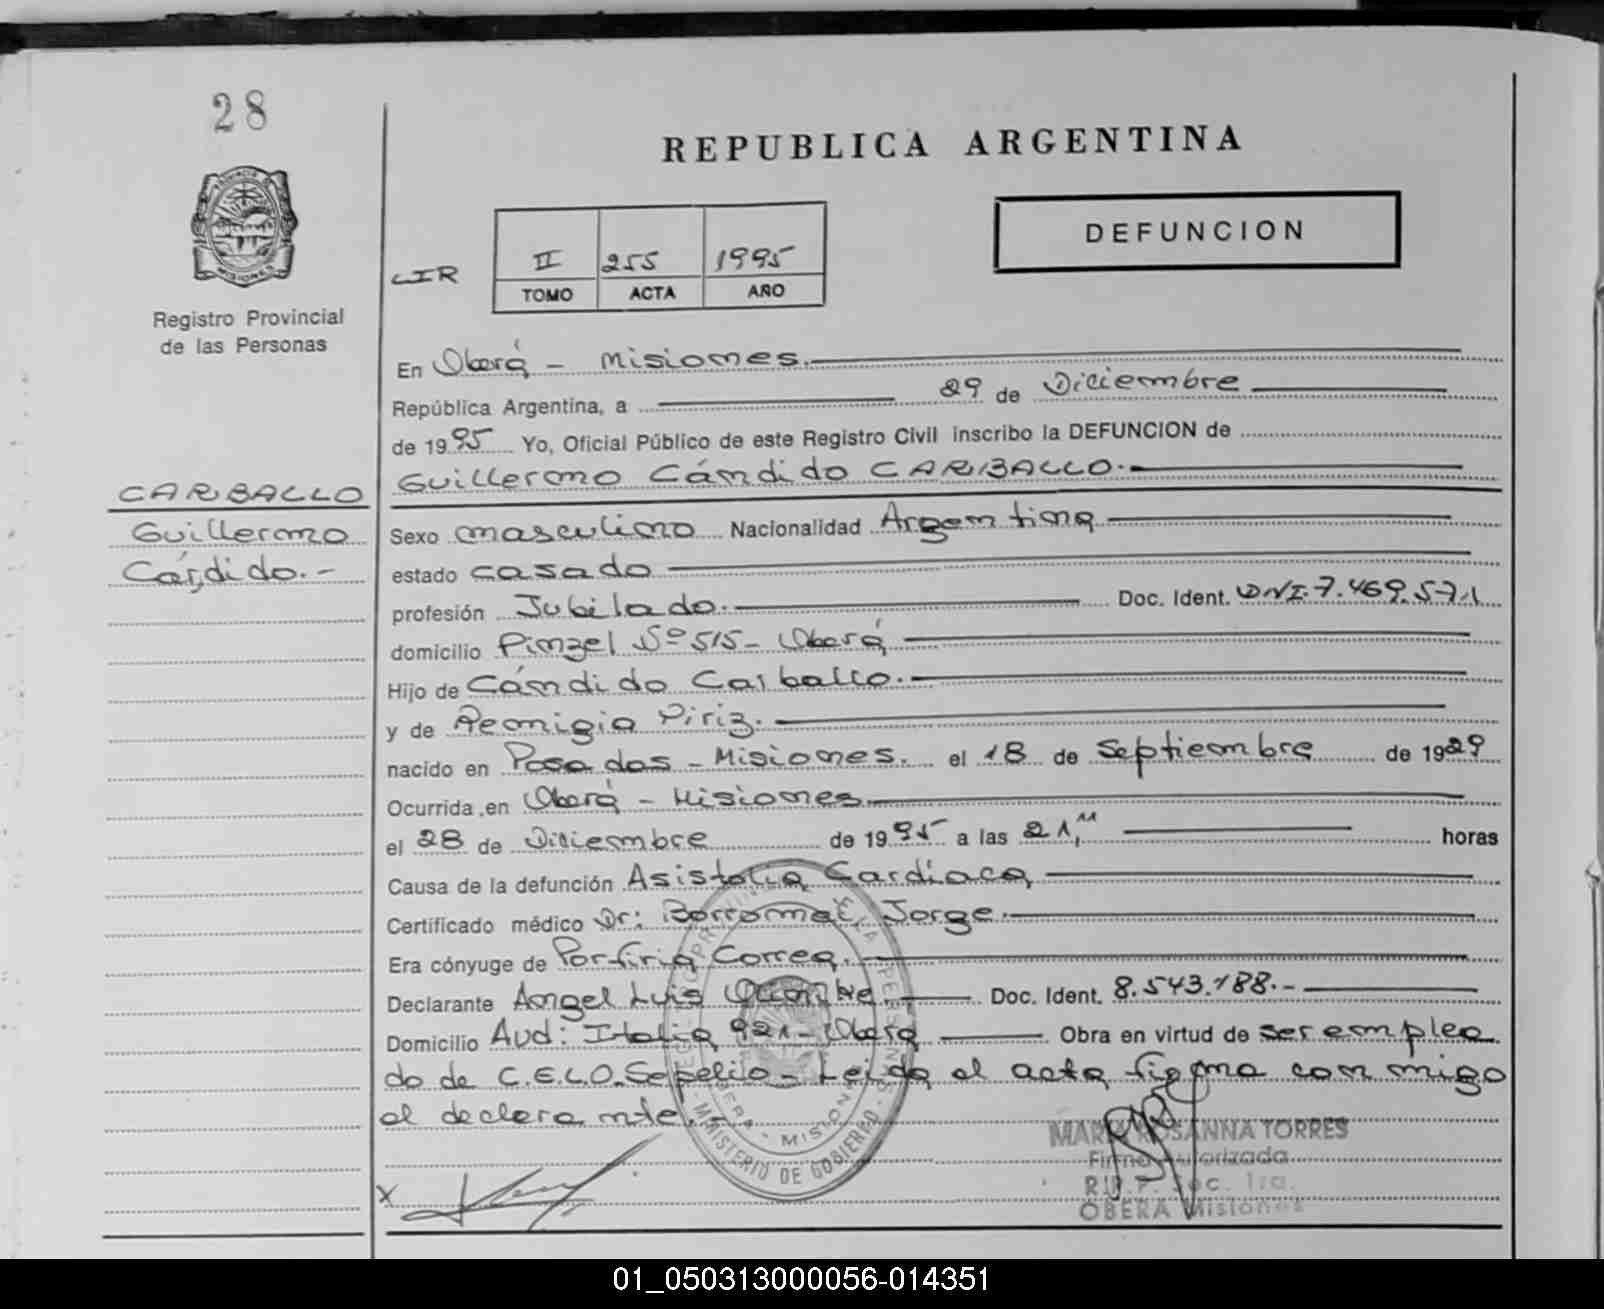 28
REPUBLICA ARGENTINA
DEFUNCION
PROVINCIA DE
MISIONES
LIR
II 255 1995
TOMO ACTA AÑO
Registro Provincial
de las Personas
En Oberá - Misiones.
República Argentina, a 29 de Diciembre
de 1995 Yo, Oficial Público de este Registro Civil inscribo la DEFUNCION de
Guillermo Cándido CARBALLO.
CARBALLO
Guillermo
Cándido.-
Sexo masculino Nacionalidad Argentina
estado casado
profesión Jubilado. Doc. Ident. DNI.7.469.571
domicilio Pinzel Nº 515- Oberá
Hijo de Cándido Carballo.
y de Remigia Piriz.
nacido en Posadas - Misiones. el 18 de Septiembre de 1929
Ocurrida en Oberá - Misiones
el 28 de Diciembre de 1995 a las 21, horas
Causa de la defunción Asistolia Cardiaca
Certificado médico Dr: Jorge.
Era cónyuge de Porfiria Correa.
Declarante Angel Luis Doc. Ident. 8.543.188.-
Domicilio Avd: Italia 921 - Oberá Obra en virtud de ser emplea
do de C.E.L.O. Sepelio - Leida el acta firma con migo
el declarante.-
MINISTERIO DE GOBIERNO
OBERA - MISIONES
MARIA ROSANNA TORRES
Firma Autorizada
R.P.P. Sec. 1ra.
OBERA Misiones
X
01_050313000056-014351